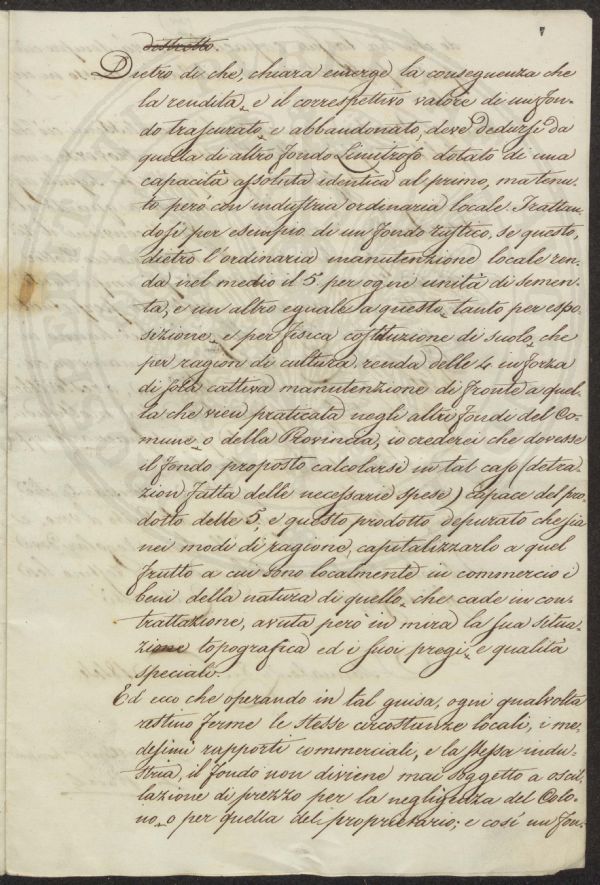 7
distretto.
Dietro di che, chiara emerge la conseguenza che
la rendita, e il correspettivo valore di un fon-
do trascurato, e abbandonato, deve dedursi da
quella di altro fondo Limitrofo dotato di una
capacità assoluta identica al primo, ma tenu-
to però con industria ordinaria locale. Trattan-
dosi per esempio di un fondo rustico, se questo,
dietro l'ordinaria manutenzione locale ren-
da nel medio il 5. per ogni unità di semen-
ta, e un altro eguale a questo, tanto per espo-
sizione, e per fisica costituzione di suolo, che
per ragion di cultura, renda delle 4. in forza
di sola cattiva manutenzione di fronte a quel-
la che vien praticata negli altri fondi del Co-
mune, o della Provincia, io crederei che dovesse
il fondo proposto calcolarsi in tal caso (detra-
zion fatta delle necessarie spese) capace del pro-
dotto delle 5, e questo prodotto depurato che sia
nei modi di ragione, capitalizzarlo a quel
frutto a cui sono localmente in commercio i
beni della natura di quello, che cade in con-
trattazione, avuta però in mira la sua situa-
zione topografica ed i suoi pregi, e qualità
speciali.
Ed ecco che operando in tal guisa, ogni qualvolta
restino ferme le stesse circostanze locali, i me-
desimi rapporti commerciale, e la stessa indu-
stria, il fondo non diviene mai soggetto a oscil-
lazione di prezzo per la negligenza del Colo-
no, o per quella del proprietario; e così un fon-